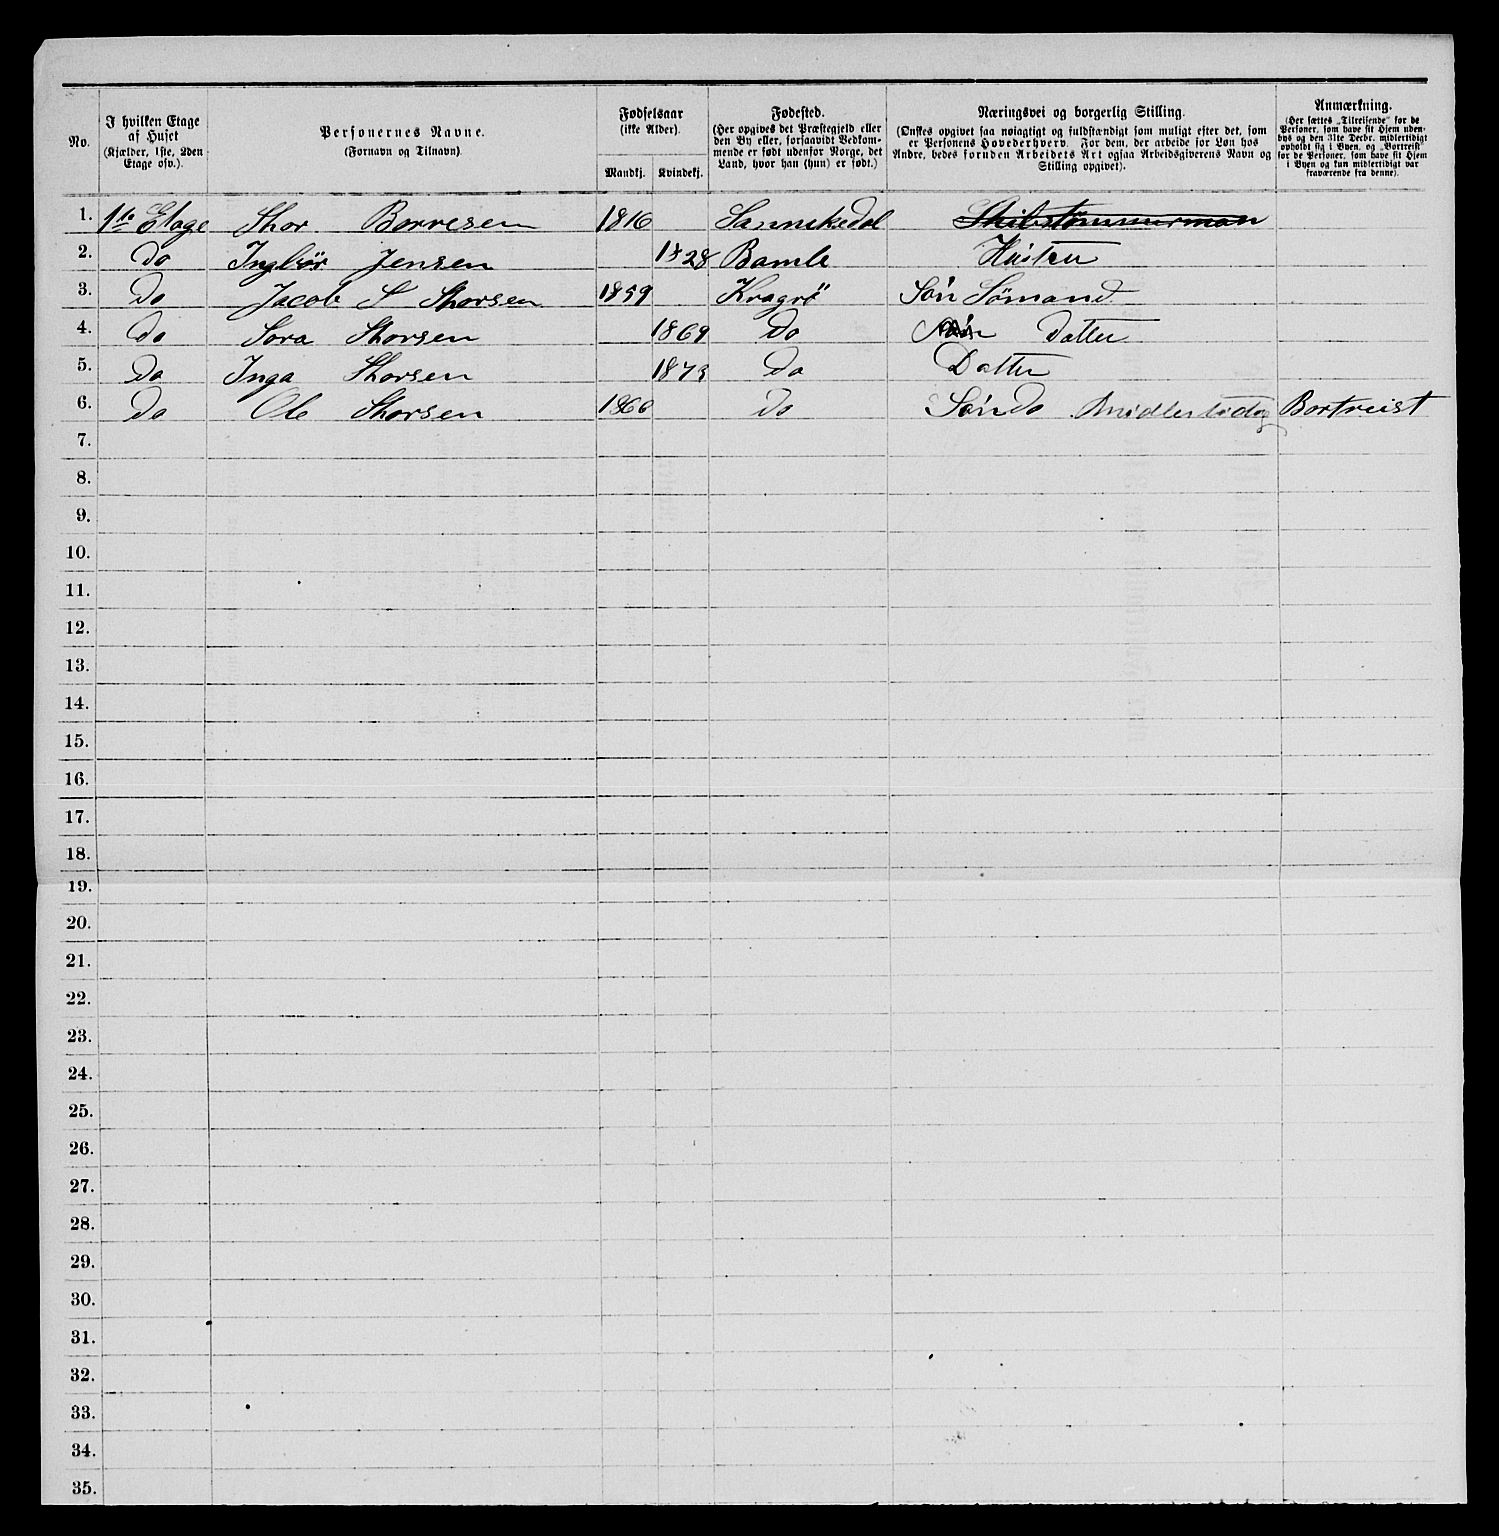 No.
I hvilken Etage af Huset (Kjælder, 1ste, 2den Etage osv.).
Personernes Navne. (Fornavn og Tilnavn).
Fødselsaar (ikke Alder).
Mandkj. Kvindekj.
Fødested. (Her opgives det Præstegjeld eller den By eller, forsaavidt Vedkommende er født udenfor Norge, det Land, hvor han (hun) er født.)
Næringsvei og borgerlig Stilling. (Ønskes opgivet saa nøiagtigt og fuldstændigt som muligt efter det, som er Personens Hovederhverv. For dem, der arbeide for Løn hos Andre, bedes foruden Arbeidets Art ogsaa Arbeidsgiverens Navn og Stilling opgivet).
Anmærkning. (Her sættes „Tilreisende“ for de Personer, som have sit Hjem udenbys og den 31te Decbr. midlertidigt opholdt sig i Byen, og „Bortreist“ for de Personer, som have sit Hjem i Byen og kun midlertidigt var fraværende fra denne).
1. 1te Etage Thor Borresen 1816 Sannikedal Skibstømmerman
2. Do Ingbör Jensen 1828 Bamle Hustru
3. Do Jacob S Thorsen 1859 Kragrö Søn Sömand
4. Do Tora Thorsen 1869 Do Datter
5. Do Inga Thorsen 1873 Do Datter
6. Do Ole Thorsen 1866 Do Søn Do Midlertidig Bortreist
7.
8.
9.
10.
11.
12.
13.
14.
15.
16.
17.
18.
19.
20.
21.
22.
23.
24.
25.
26.
27.
28.
29.
30.
31.
32.
33.
34.
35.